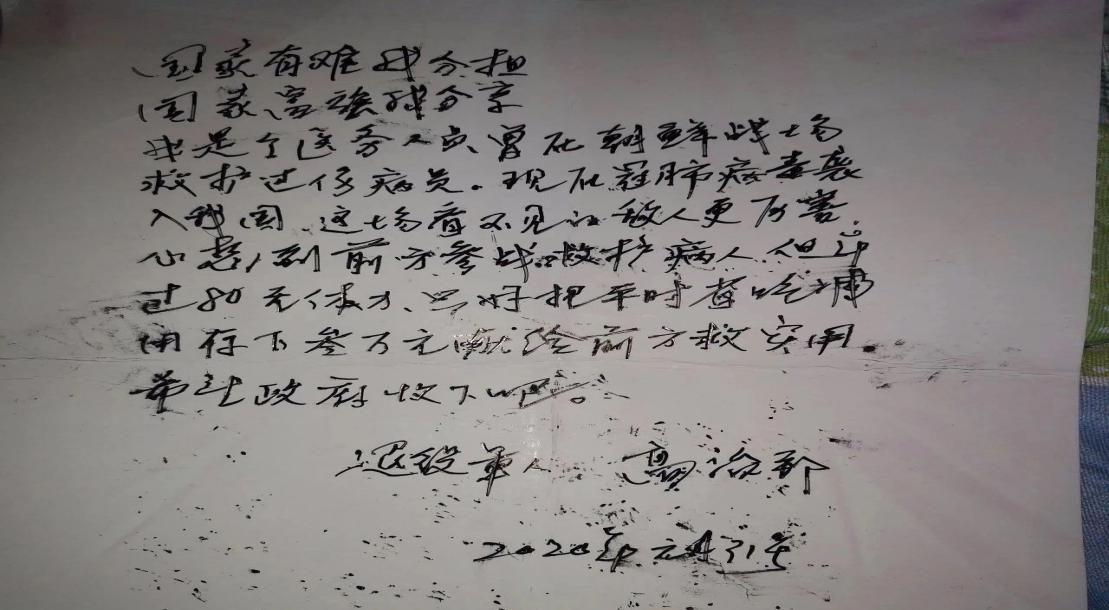 国家有难我分担
国家富强我分享
我是个医务人员曾在朝鲜战场
救护过伤病员。现在冠肺病毒袭
入我国、这场看不见的敌人更厉害.
心想到前方参战救护病人但年
过80无体力、只好把平时省吃
用存下叁万元献给前方救灾用.
希望政府收下吧。
退役军人 高治
2020年元月31号